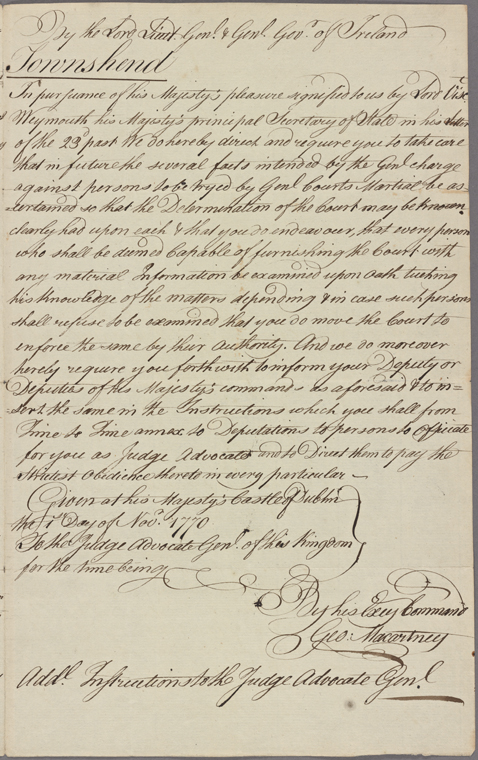 By the Lord Lieut Genl. & Genl. Govr. of Ireland
Townshend
In pursuance of his Majesty's pleasure signified to us by Lord Visct.
Weymouth his Majesty's principal Secretary of State in his letter
of the 23d past We do hereby direct and require you to take care
that in future the several facts intended by the Genl. charge
against persons to be tryed by Genl. Courts Martial be as-
certained so that the Determination of the Court may be known
clearly had upon each & that you do endeavour, that every person
who shall be deemed Capable of furnishing the Court with
any material Information be examined upon oath tuching
his Knowledge of the matters depending & in case such persons
shall refuse to be examined that you do move the Court to
inforce the same by their authority. And we do moreover
hereby require you forthwith to inform your Deputy or
Deputies of his Majesty's commands as aforesaid & to in-
sert the same in the Instructions which you shall from
Time to Time annex to Deputations to persons to Officiate
for you as Judge Advocate and to Direct them to pay the
strictest Obedience thereto in every particular
Given at his Majesty's Castle of Dublin
the 1st Day of Novr. 1770
To the Judge Advocate Genl. of this Kingdom
for the time being
By his Exey Command
Geo: Macartney
Addl. Instructions to the Judge Advocate Genl.